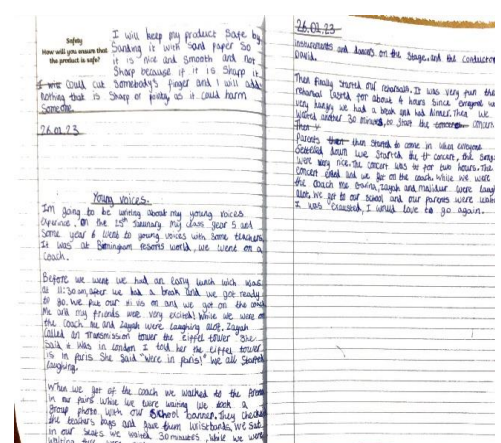 Safety
How will you ensure that
the product is safe?
I will keep my product safe by
Sanding it with sand paper so
it is nice and smooth and not
Sharp because if it is sharp it
could cut somebody's finger and I will add
nothing that is sharp or pointy as it could harm
Someone.
26.01.23
Young voices.
Im going to be writing about my young voices
experience, on the 13th January my class year 5 and
Some year 6 went to young voices with some teachers
It was at Birmingham resorts world, we went on a
coach.
Before we went we had an early lunch wich was
at 11:30 am, after we had a break and we got ready
to go. We put our hi vis on and we got on the coach
Me and my friends were very excited! While we were on
the coach me and Zayah were laughing alot. Zayah
called an transmission tower the eiffel tower she
Said it was in london I told her the eiffel tower
is in paris She said "were in paris!" we all started
laughing.
When we got of the coach we walked to the Arena
in our pairs while we were waiting we took a
group photo with our School banner. They checked
the teachers bags and gave them wristbands. We sat
in our seats we waited 30 minutes, while we were
waiting they were
26.01.23
instruments and dancers on the stage, and the conductor
David.
Then finally started our rehearsal. It was very fun the
rehearsal lasted for about 4 hours since everyone was
very hungry we had a break and had dinner. Then we
waited another 30 minutes, to start the concert
Parents then started to come in when everyone
Settelled down we started the concert, the songs
were very nice. The concert was for two hours. The
concert ended and we got on the coach. While we were
the coach me Zayah and were laughing
alot. We got to our school and our parents were
I was exausted, I would love to go again.